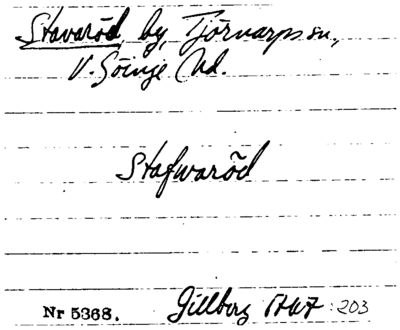 Stavaröd, by, Tjörnarps sn,
V. Göinge hd.
Stafwaröd
Nr 5368. Gillberg :203